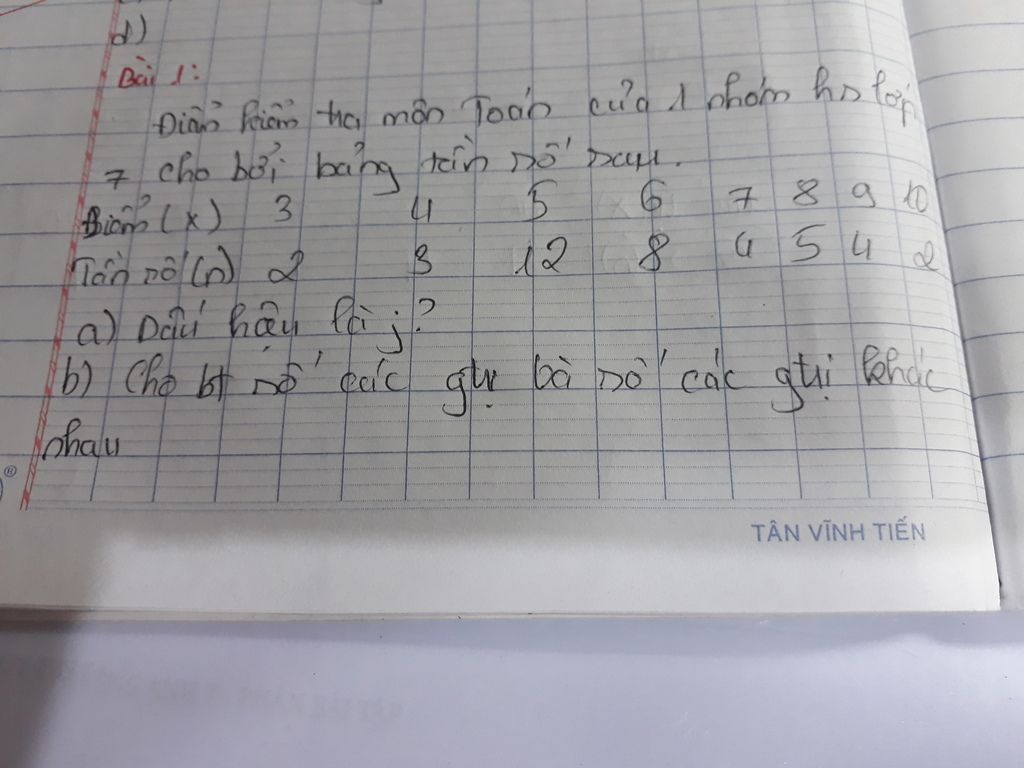 d)
Bài 1:
Điểm kiểm tra môn Toán của 1 nhóm hs lớp
7 cho bởi bảng tần số sau.
Điểm (x) 3 4 5 6 7 8 9 10
Tần số (n) 2 3 12 8 4 5 4 2
a) Dấu hệu là j?
b) Cho bt số các gtrị và số các gtrị khác
nhau
®
TÂN VĨNH TIẾN